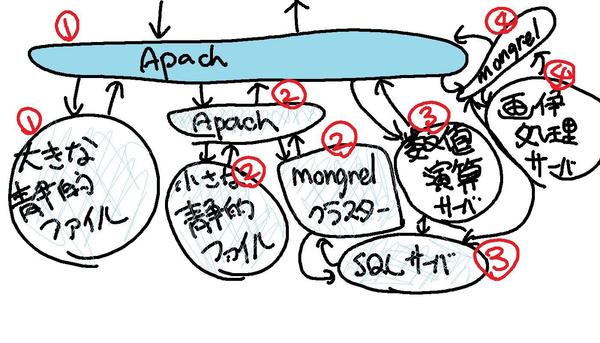 ①
Apach
④
mongrel
①
大きな
静的
ファイル
②
Apach
②
小さな
静的
ファイル
②
mongrel
クラスター
③
数値
演算
サーバ
④
画伊
処理
サーバ
SQLサーバ
③